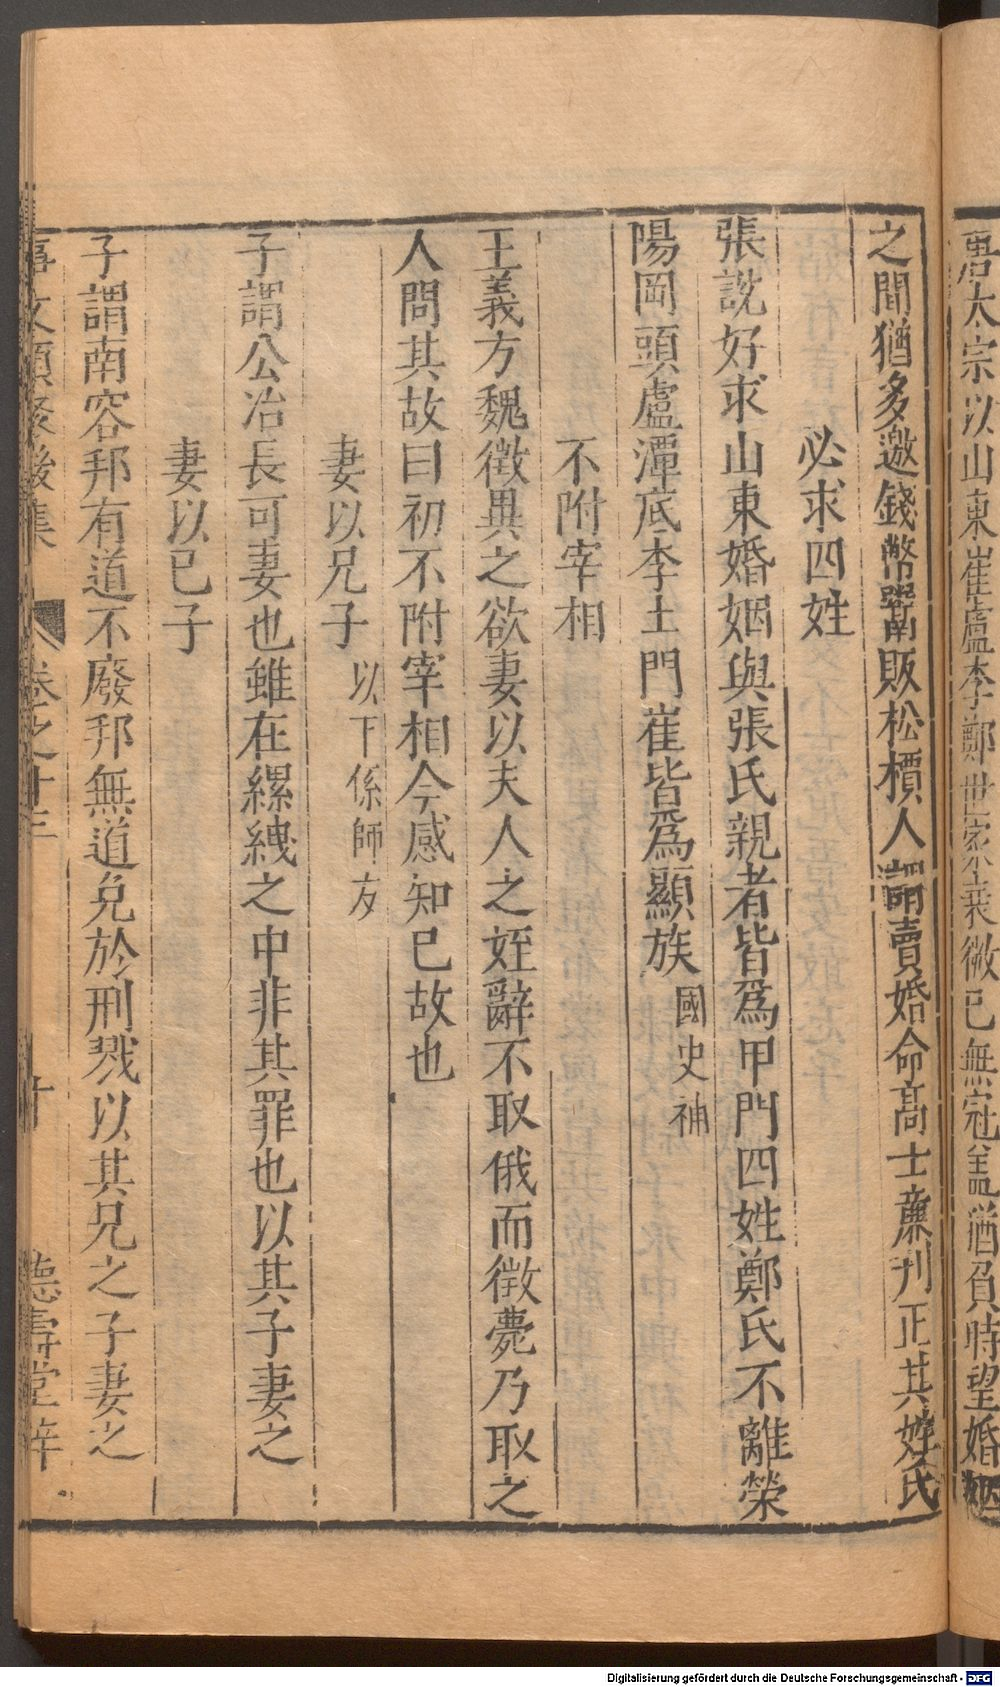 唐太宗以山東崔盧李鄭世家衰微已無冠盖猶負時望婚姻
之間猶多邀錢幣鬻販松檟人謂賣婚命高士廉刋正其姓氏
必求四姓
張說好求山東婚姻與張氏親者皆爲甲門四姓鄭氏不離榮
陽岡頭盧潭底李土門崔皆爲顯族 國史補
不附宰相
王義方魏徵異之欲妻以夫人之姪辭不取俄而徵薨乃取之
人問其故曰初不附宰相今感知已故也
妻以兄子 以下係師友
子謂公冶長可妻也雖在縲絏之中非其罪也以其子妻之
妻以已子
子謂南容邦有道不廢邦無道免於刑戮以其兄之子妻之
事文類聚後集 卷之十三 十 德壽堂梓
Digitalisierung gefördert durch die Deutsche Forschungsgemeinschaft - DFG